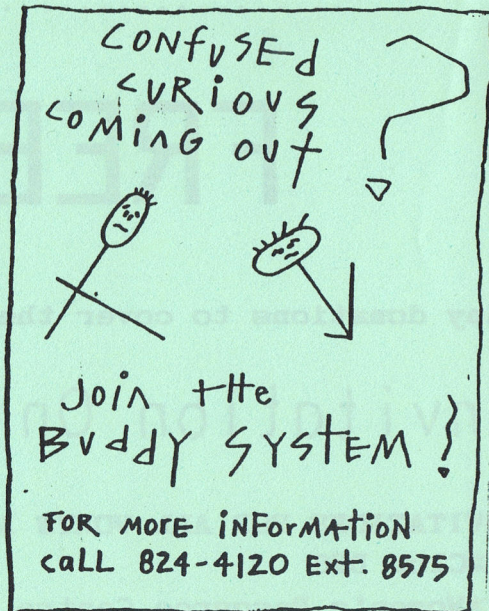 CONfUSEd
CURiOUS
COMiNG OUt
?
JOiN tHe
BUddY SYStEM!
FOR MORE iNFORMAtiON
CaLL 824-4120 Ext. 8575